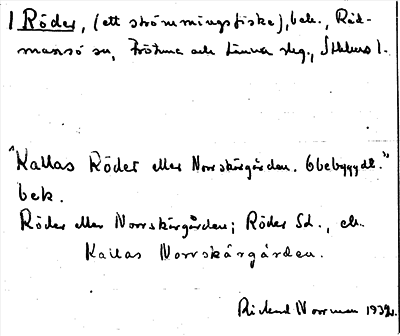 1 Röder, (ett strömmingsfiske), bek., Råd-
mansö sn, Fröåna och Länna skg., Sthlms l.
"Kallas Röder eller Norrskärgården. Obebyggd."
bek.
Röder eller Norrskärgården; Röder Sd.,
Kallas Norrskärgården.
Rickard Norrman 1932.